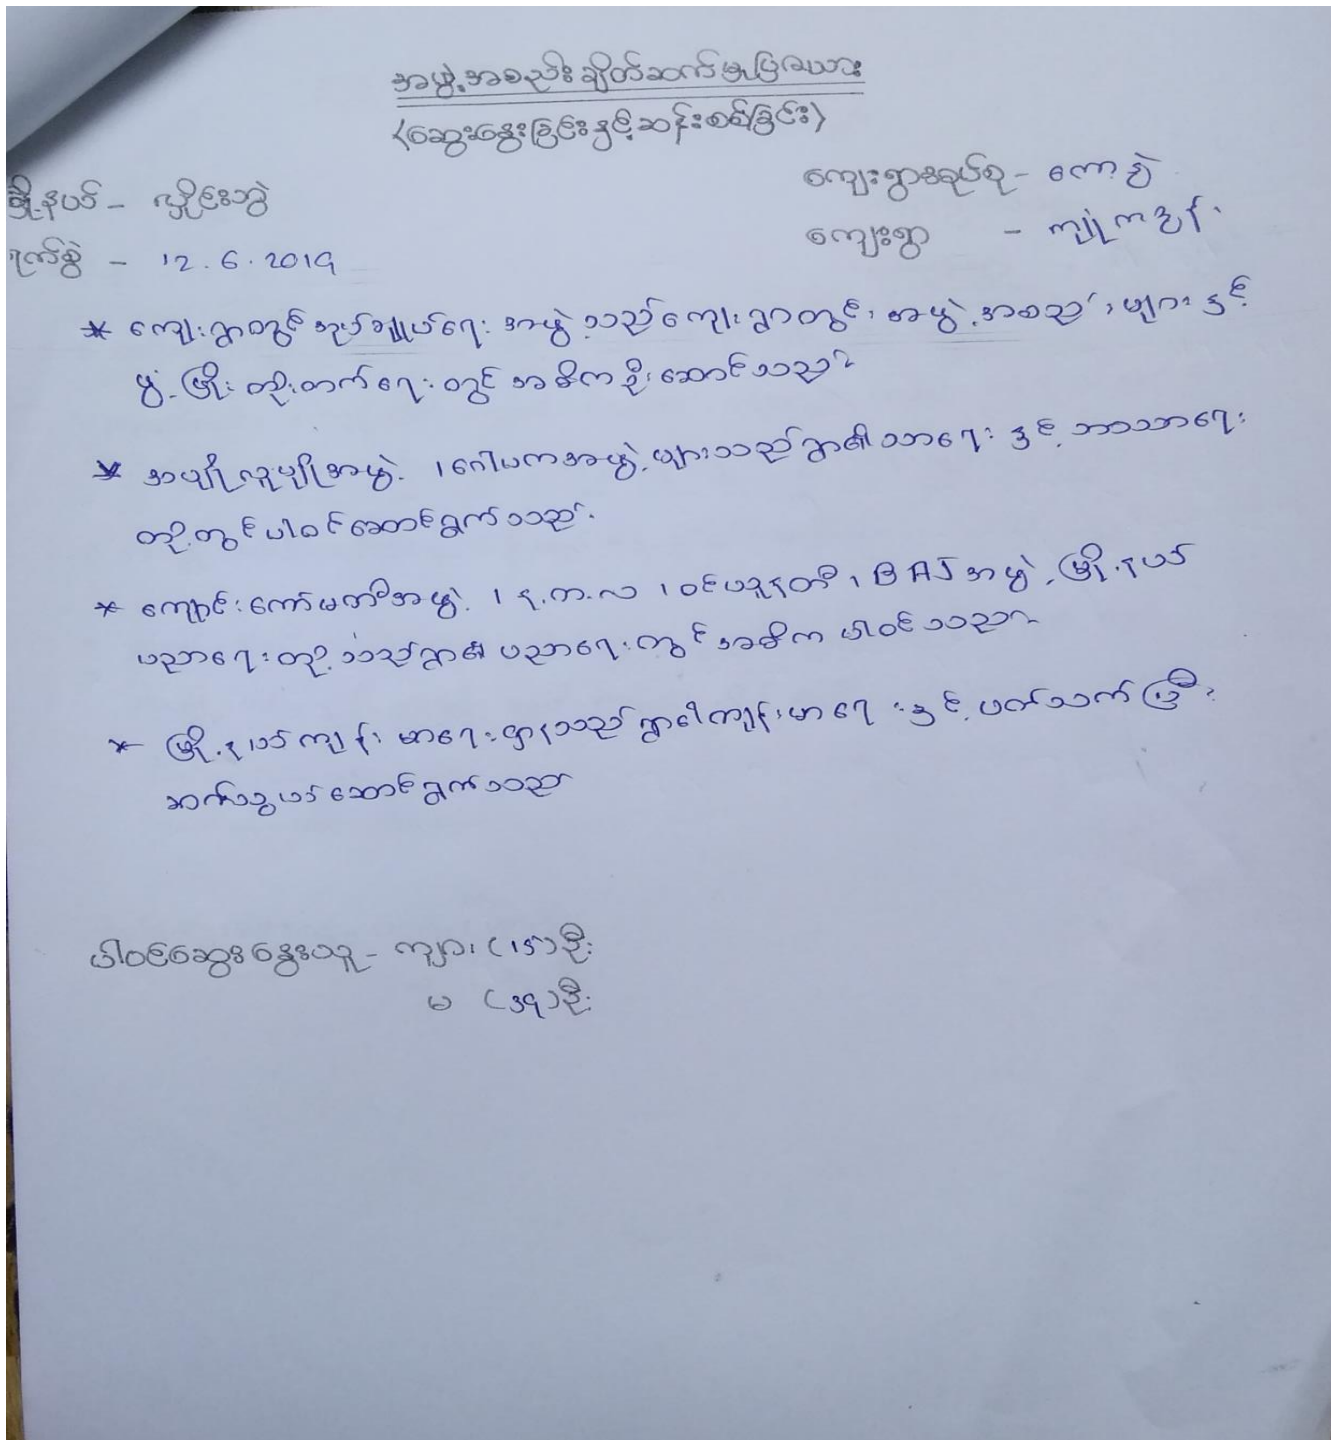 အဖွဲ့အစည်းချိတ်ဆက်မှုပြဇယား
(ဆွေးနွေးခြင်းနှင့်ဆန်းစစ်ခြင်း)
ကျေးရွာအုပ်စု - ကော့စွဲ
မြို့နယ် - လှိုင်းဘွဲ
ကျေးရွာ - ကျုံကဒွန်
ရက်စွဲ - 12.6.2019
* ကျေးရွာတွင် အုပ်ချုပ်ရေးအဖွဲ့သည် ကျေးရွာတွင်း အဖွဲ့အစည်းများနှင့်
ဖွံ့ဖြိုးတိုးတက်ရေးတွင် အဓိကဦးဆောင်သည်
* အပျိုလူပျိုအဖွဲ့၊ ဂေါပကအဖွဲ့များသည် ရွာ၏သာရေးနှင့် ဘာသာရေး
တို့တွင်ပါဝင်ဆောင်ရွက်သည်.
* ကျောင်းကော်မတီအဖွဲ့၊ န.က.လ၊ ဝင်ပသူနတီ၊ BAJ အဖွဲ့၊ မြို့နယ်
ပညာရေးတို့သည် ရွာ၏ ပညာရေးတွင် အဓိက ပါဝင်သည်
* မြို့နယ်ကျန်းမာရေးဌာနသည် ရွာ၏ကျန်းမာရေးနှင့် ပတ်သက်ပြီး
ဆက်သွယ်ဆောင်ရွက်သည်
ပါဝင်ဆွေးနွေးသူ - ကျား (၁၅)ဦး
မ (၃၄)ဦး